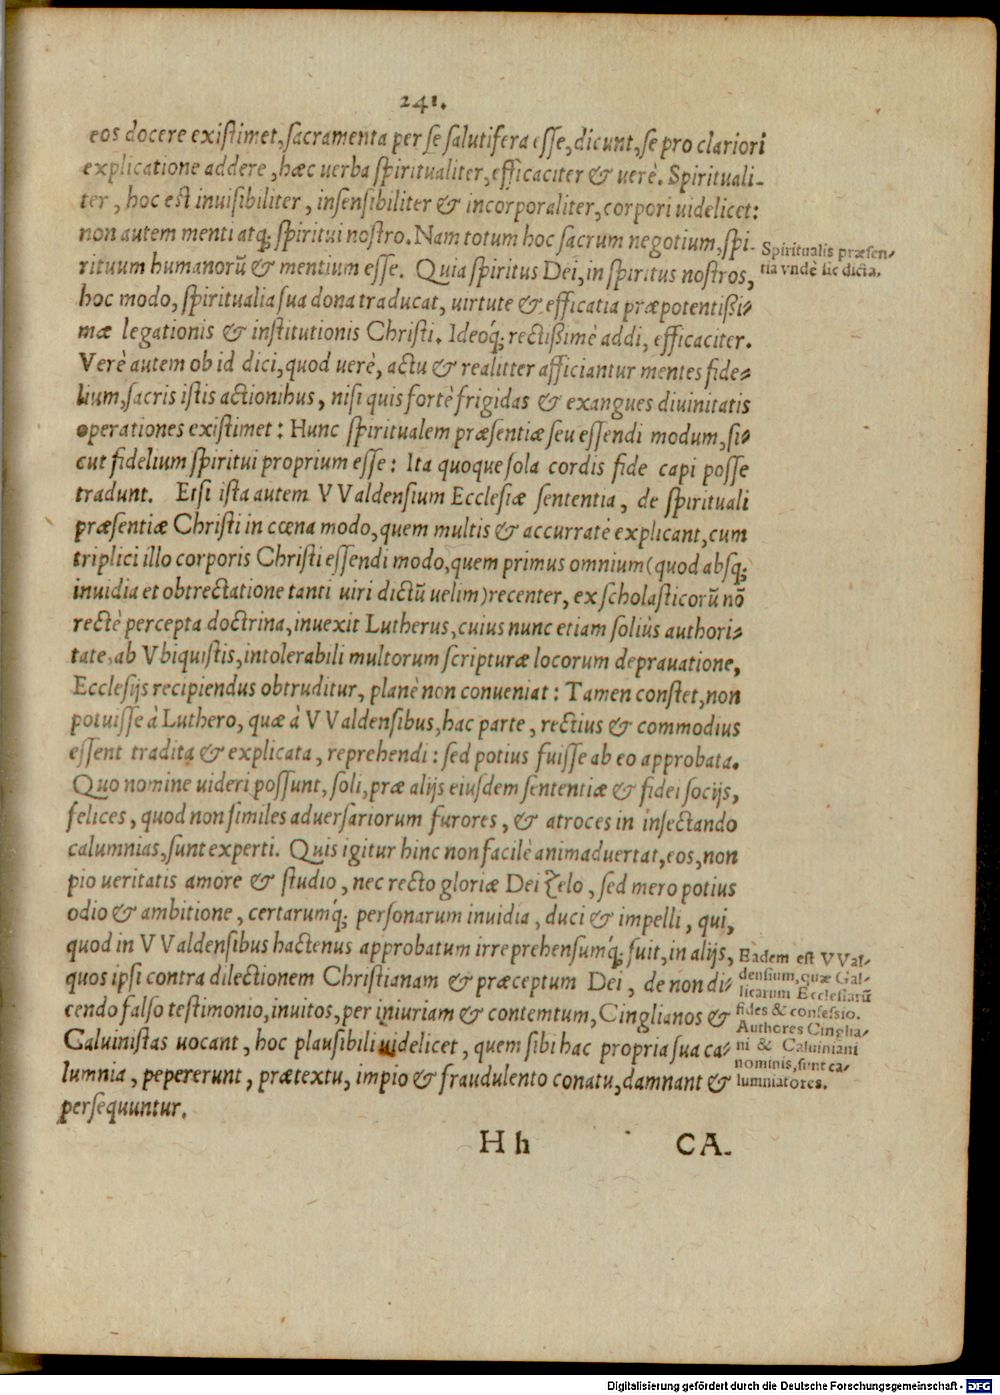 241.
eos docere existimet, sacramenta per se salutifera esse, dicunt, se pro clariori
explicatione addere, hæc uerba spiritualiter, efficaciter & uerè. Spirituali-
ter, hoc est inuisibiliter, insensibiliter & incorporaliter, corpori uidelicet:
non autem menti atq; spiritui nostro. Nam totum hoc sacrum negotium, spi-
rituum humanorũ & mentium esse. Quia spiritus Dei, in spiritus nostros,
Spiritualis præsen-
tia vndè sic dicta.
hoc modo, spiritualia sua dona traducat, uirtute & efficatia præpotentißi-
mæ legationis & institutionis Christi. Ideoq́; rectißimè addi, efficaciter.
Verè autem ob id dici, quod uerè, actu & realitter afficiantur mentes fide-
lium, sacris istis actionibus, nisi quis fortè frigidas & exangues diuinitatis
operationes existimet: Hunc spiritualem præsentiæ seu essendi modum, si-
cut fidelium spiritui proprium esse: Ita quoque sola cordis fide capi posse
tradunt. Etsi ista autem VValdensium Ecclesiæ sententia, de spirituali
præsentiæ Christi in cœna modo, quem multis & accurratè explicant, cum
triplici illo corporis Christi essendi modo, quem primus omnium (quod absq;
inuidia et obtrectatione tanti uiri dictũ uelim) recenter, ex scholasticorũ nõ
rectè percepta doctrina, inuexit Lutherus, cuius nunc etiam soliùs authori-
tate, ab Vbiquistis, intolerabili multorum scripturæ locorum deprauatione,
Ecclesijs recipiendus obtruditur, planè non conueniat: Tamen constet, non
potuisse à Luthero, quæ à VValdensibus, hac parte, rectius & commodius
essent tradita & explicata, reprehendi: sed potius fuisse ab eo approbata.
Quo nomine uideri possunt, soli, præ alijs eiusdem sententiæ & fidei socijs,
felices, quod non similes aduersariorum furores, & atroces in insectando
calumnias, sunt experti. Quis igitur hinc non facilè animaduertat, eos, non
pio ueritatis amore & studio, nec recto gloriæ Dei zelo, sed mero potius
odio & ambitione, certarumq́; personarum inuidia, duci & impelli, qui,
quod in VValdensibus hactenus approbatum irreprehensumq́; fuit, in alijs,
quos ipsi contra dilectionem Christianam & præceptum Dei, de non di-
cendo falso testimonio, inuitos, per iniuriam & contemtum, Cinglianos &
Caluinistas uocant, hoc plausibili uidelicet, quem sibi hac propria sua ca-
lumnia, pepererunt, prætextu, impio & fraudulento conatu, damnant &
persequuntur.
Eadem est VVal-
densium, quæ Gal-
licarum Ecclesiarũ
fides & confessio.
Authores Cinglia-
ni & Caluiniani
nominis, sunt ca-
lumniatores.
Hh CA-
Digitalisierung gefördert durch die Deutsche Forschungsgemeinschaft - DFG